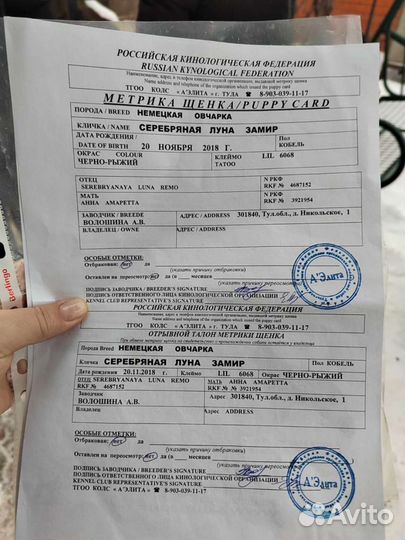 РОССИЙСКАЯ КИНОЛОГИЧЕСКАЯ ФЕДЕРАЦИЯ
RUSSIAN KYNOLOGICAL FEDERATION
Наименование, адрес и телефон кинологической организации, выдавшей метрику щенка
Name address and telephone of the organization which issued the puppy card
ТГОО КОЛС «А'ЭЛИТА» г. ТУЛА ☎ 8-903-039-11-17
МЕТРИКА ЩЕНКА/PUPPY CARD
ПОРОДА / BREED НЕМЕЦКАЯ ОВЧАРКА
КЛИЧКА / NAME СЕРЕБРЯНАЯ ЛУНА ЗАМИР
ДАТА РОЖДЕНИЯ / Пол
DATE OF BIRTH 20 НОЯБРЯ 2018 Г. КОБЕЛЬ
ОКРАС COLOUR КЛЕЙМО LIL 6068
ЧЕРНО-РЫЖИЙ TATOO
ОТЕЦ N РКФ
SEREBRYANAYA LUNA REMO RKF № 4687152
МАТЬ N РКФ
АННА АМАРЕТТА RKF № 3921954
ЗАВОДЧИК / BREEDE АДРЕС / ADDRESS 301840, Тул.обл., д. Никольское, 1
ВОЛОШИНА А.В.
ВЛАДЕЛЕЦ / OWNE АДРЕС / ADDRESS
ОСОБЫЕ ОТМЕТКИ:
Отбракован: (да) нет
(указать причину отбраковки)
Оставлен на пересмотр: (да) нет (в месяцев
(указать причину переосмотра)
ПОДПИСЬ ЗАВОДЧИКА / BREEDER'S SIGNATURE
ПОДПИСЬ ОТВЕТСТВЕННОГО ЛИЦА КИНОЛОГИЧЕСКОЙ ОРГАНИЗАЦИИ
KENNEL CLUB REPRESENTATIVE'S SIGNATURE
А'Элита
РОССИЙСКАЯ КИНОЛОГИЧЕСКАЯ ФЕДЕРАЦИЯ
RUSSIAN KYNOLOGICAL FEDERATION
Наименование, адрес и телефон кинологической организации, выдавшей метрику щенка
Name address and telephone of the organization which issued the puppy card
ТГОО КОЛС «А'ЭЛИТА» г. ТУЛА ☎ 8-903-039-11-17
ОТРЫВНОЙ ТАЛОН МЕТРИКИ ЩЕНКА
Порода Breed НЕМЕЦКАЯ ОВЧАРКА
Кличка СЕРЕБРЯНАЯ ЛУНА ЗАМИР ПОЛ КОБЕЛЬ
Дата рождения 20.11.2018 г. Клеймо LIL 6068 Окрас ЧЕРНО-РЫЖИЙ
ОТЕЦ SEREBRYANAYA LUNA REMO МАТЬ АННА АМАРЕТТА
RKF № 4687152 RKF № № 3921954
Заводчик АДРЕС 301840, Тул.обл., д. Никольское, 1
ВОЛОШИНА А.В.
Владелец Адрес ADDRESS
ОСОБЫЕ ОТМЕТКИ:
Отбракован: (да) нет
(указать причину отбраковки)
Оставлен на пересмотр: (да) нет (в месяцев
(указать причину переосмотра)
ПОДПИСЬ ЗАВОДЧИКА / BREEDER'S SIGNATURE
ПОДПИСЬ ОТВЕТСТВЕННОГО ЛИЦА КИНОЛОГИЧЕСКОЙ ОРГАНИЗАЦИИ
KENNEL CLUB REPRESENTATIVE'S SIGNATURE
ТГОО КОЛС «А'ЭЛИТА» ☎ 8-903-039-11-17
А'Элита
Berlingo
Avito